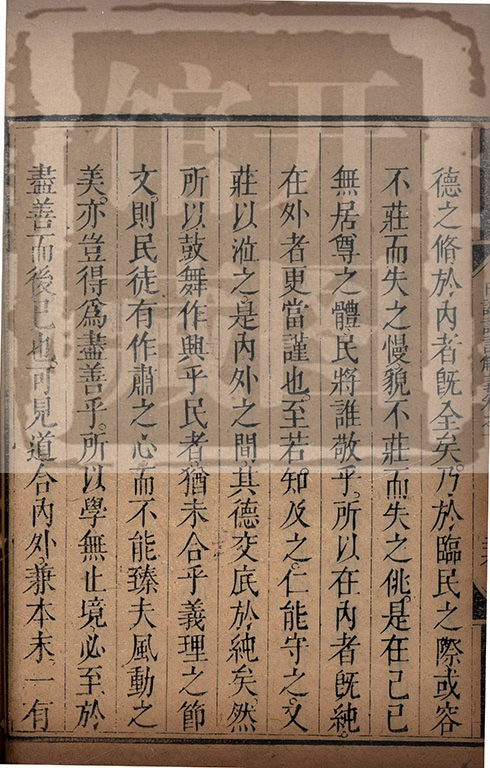 德之脩於內者旣全矣。乃於臨民之際或容
不莊而失之慢貌不莊而失之佻。是在己已
無居尊之體。民將誰敬乎。所以在內者旣純。
在外者更當謹也。至若。知及之。仁能守之。又
莊以涖之。是內外之間。其德交底於純矣然
所以鼓舞作興乎民者。猶未合乎義理之節
文。則民徒有作肅之心而不能臻夫風動之
美。亦豈得爲盡善乎。所以學無止境必至於
盡善而後已也。可見道合內外。兼本末。一有